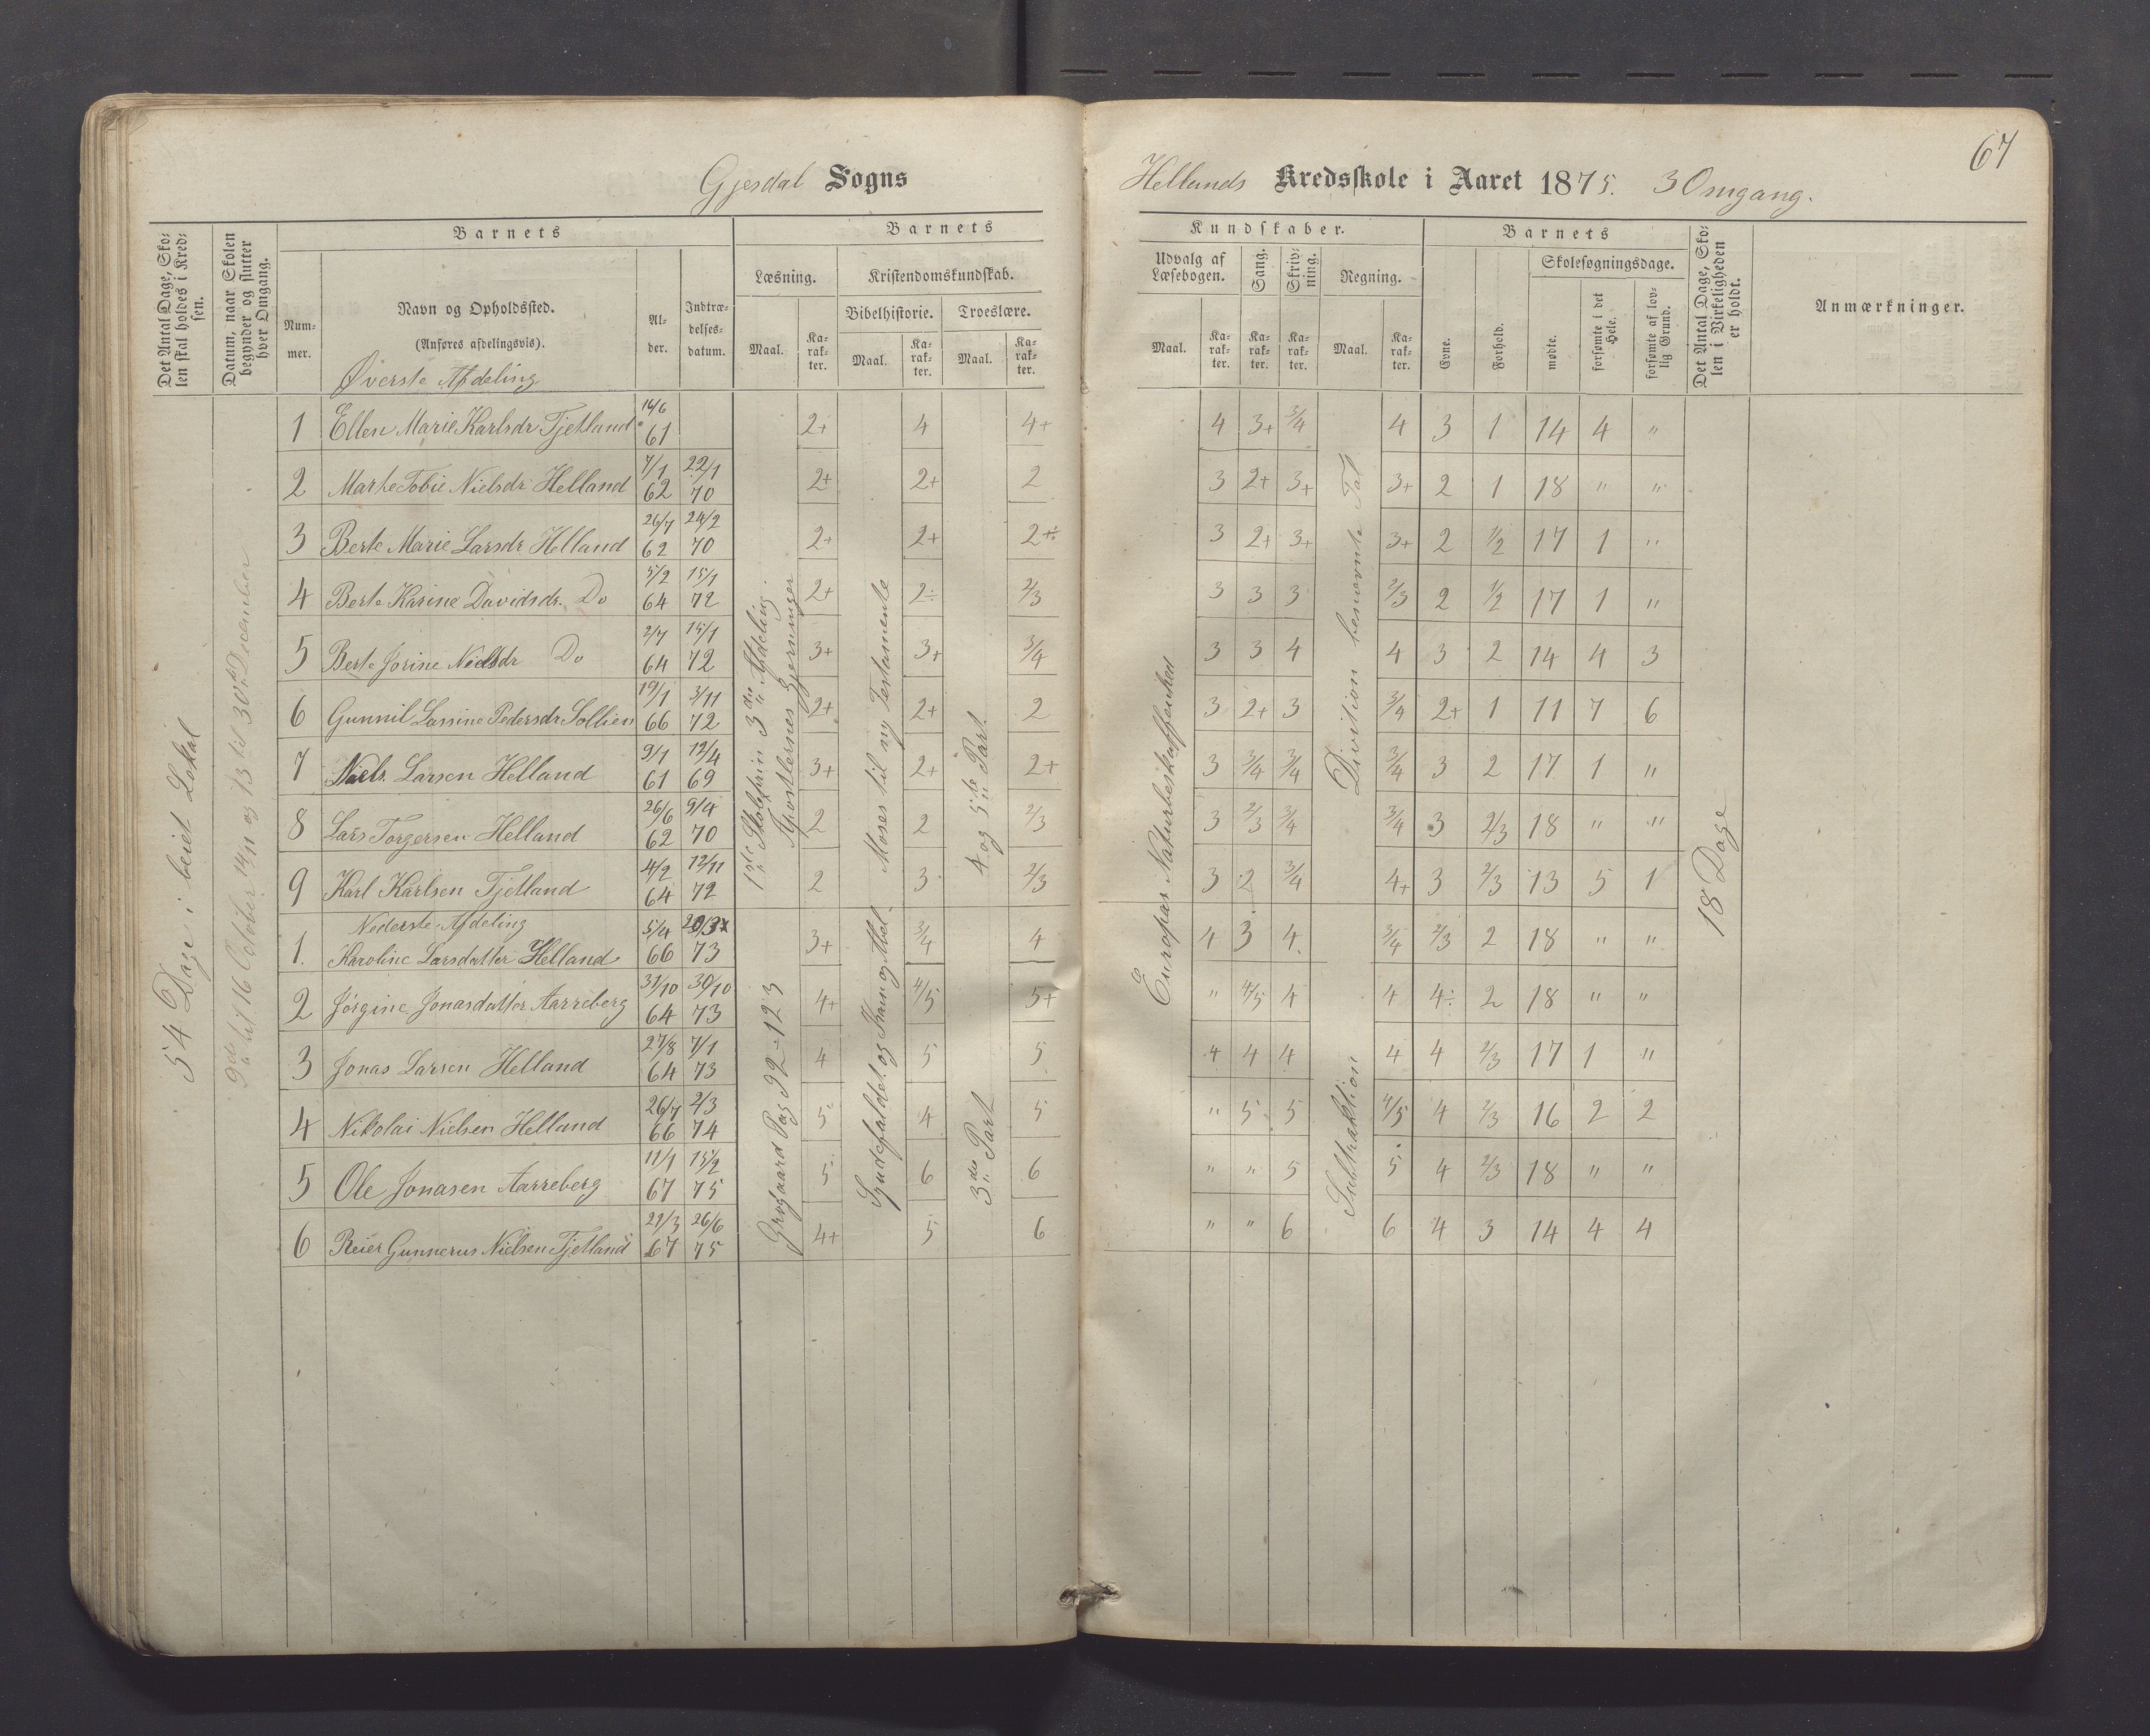 67
Gjesdal Sogns
Hellands Kredsskole i Aaret 1875. 3 Omgang.
Det Antal Dage, Skolen skal holdes i Kredsen.
Datum, naar Skolen begynder og slutter hver Omgang.
Barnets
Nummer.
Navn og Opholdssted.
(Anføres afdelingsvis).
Alder.
Indtrædelsesdatum.
Barnets
Læsning.
Maal.
Karakter.
Kristendomskundskab.
Bibelhistorie.
Maal.
Karakter.
Troeslære.
Maal.
Karakter.
Kundskaber.
Udvalg af Læsebogen.
Maal.
Karakter.
Sang.
Karakter.
Skrivning.
Karakter.
Regning.
Maal.
Karakter.
Barnets
Evne.
Forhold.
Skolesøgningsdage.
mødte.
forsømte i det Hele.
forsømte af lovlig Grund.
Det Antal Dage, Skolen i Virkeligheden er holdt.
Anmærkninger.
54 Dage i leiet Lokal
til 16 October 14/11 og 13 til 30 December
Øverste Afdeling
1 Ellen Marie Karlsdr Tjetland 14/6 61 2+ 4 4+ 4 3+ 3/4 4 3 1 14 4 "
2 Marte Tobie Nielsdr Helland 7/1 62 22/1 70 2+ 2+ 2 3 2+ 3+ 3+ 2 1 18 " "
3 Berte Marie Larsdr Helland 26/7 62 24/2 70 2+ 2+ 2+ 3 2+ 3+ 3+ 2 1/2 17 1 "
4 Berte Karine Davidsdr. Do 5/2 64 15/1 72 2+ 2÷ 2/3 3 3 3 2/3 2 1/2 17 1 "
5 Berte Jorine Nielsdr Do 2/7 64 15/1 72 3+ 3+ 3/4 3 3 4 4 3 2 14 4 3
6 Gunnil Lassine Pedersdr Sollien 19/1 66 3/11 72 2+ 2+ 2 3 2+ 3 3/4 2+ 1 11 7 6
7 Niels Larsen Helland 9/1 61 12/4 69 3+ 2+ 2+ 3 3/4 3/4 3/4 3 2 17 1 "
8 Lars Torgersen Helland 26/6 62 9/4 70 2 2 2/3 3 2/3 3/4 3/4 3 2/3 18 " "
9 Karl Karlsen Tjetland 4/2 64 12/11 72 2 3 2/3 3 2 3/4 4+ 3 2/3 13 5 1
1ste Skoletrin 3die Afdeling
Apostlernes Gjerninger
Moses til ny Testamente
4 og 5te Part
Europas Naturbeskaffenhed
Division benævnte Tal
18 Dage
Nederste Afdeling
1. Karoline Larsdatter Helland 5/4 66 73 3+ 3/4 4 4 3 4 3/4 2/3 2 18 " "
2 Jørgine Jonasdatter Aarreberg 31/10 64 30/10 73 4+ 4/5 5+ " 4/5 4 4 4÷ 2 18 " "
3 Jonas Larsen Helland 27/8 64 7/1 73 4 5 5 4 4 4 4 4 2/3 17 1 "
4 Nikolai Nielsen Helland 26/7 66 2/3 74 5 4 5 " 5 5 4/5 4 2/3 16 2 2
5 Ole Jonasen Aarreberg 11/1 67 15/2 75 5 6 6 " " 5 5 4 2/3 18 " "
6 Reier Gunnerus Nielsen Tjetland 22/3 67 26/6 75 4+ 5 6 " " 6 6 4 3 14 4 4
Grøgaard Pag 92-123
Syndefaldet og Kain og Abel
3die Part
Subtraktion